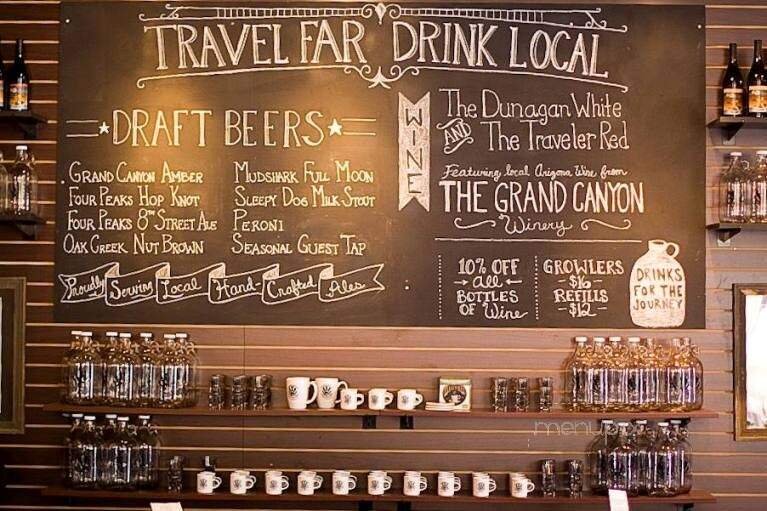 TRAVEL FAR DRINK LOCAL
DRAFT BEERS
GRAND CANYON AMBER
FOUR PEAKS HOP KNOT
FOUR PEAKS 8TH STREET ALE
OAK CREEK NUT BROWN
MUDSHARK FULL MOON
SLEEPY DOG MILK STOUT
PERONI
SEASONAL GUEST TAP
Proudly Serving Local Hand-Crafted Ales
WINE
The Dunagan White
AND The Traveler Red
Featuring local Arizona Wine from
THE GRAND CANYON
Winery
10% OFF
all
BOTTLES
of Wine
GROWLERS
$16
REFILLS
$12
DRINKS
FOR THE
JOURNEY